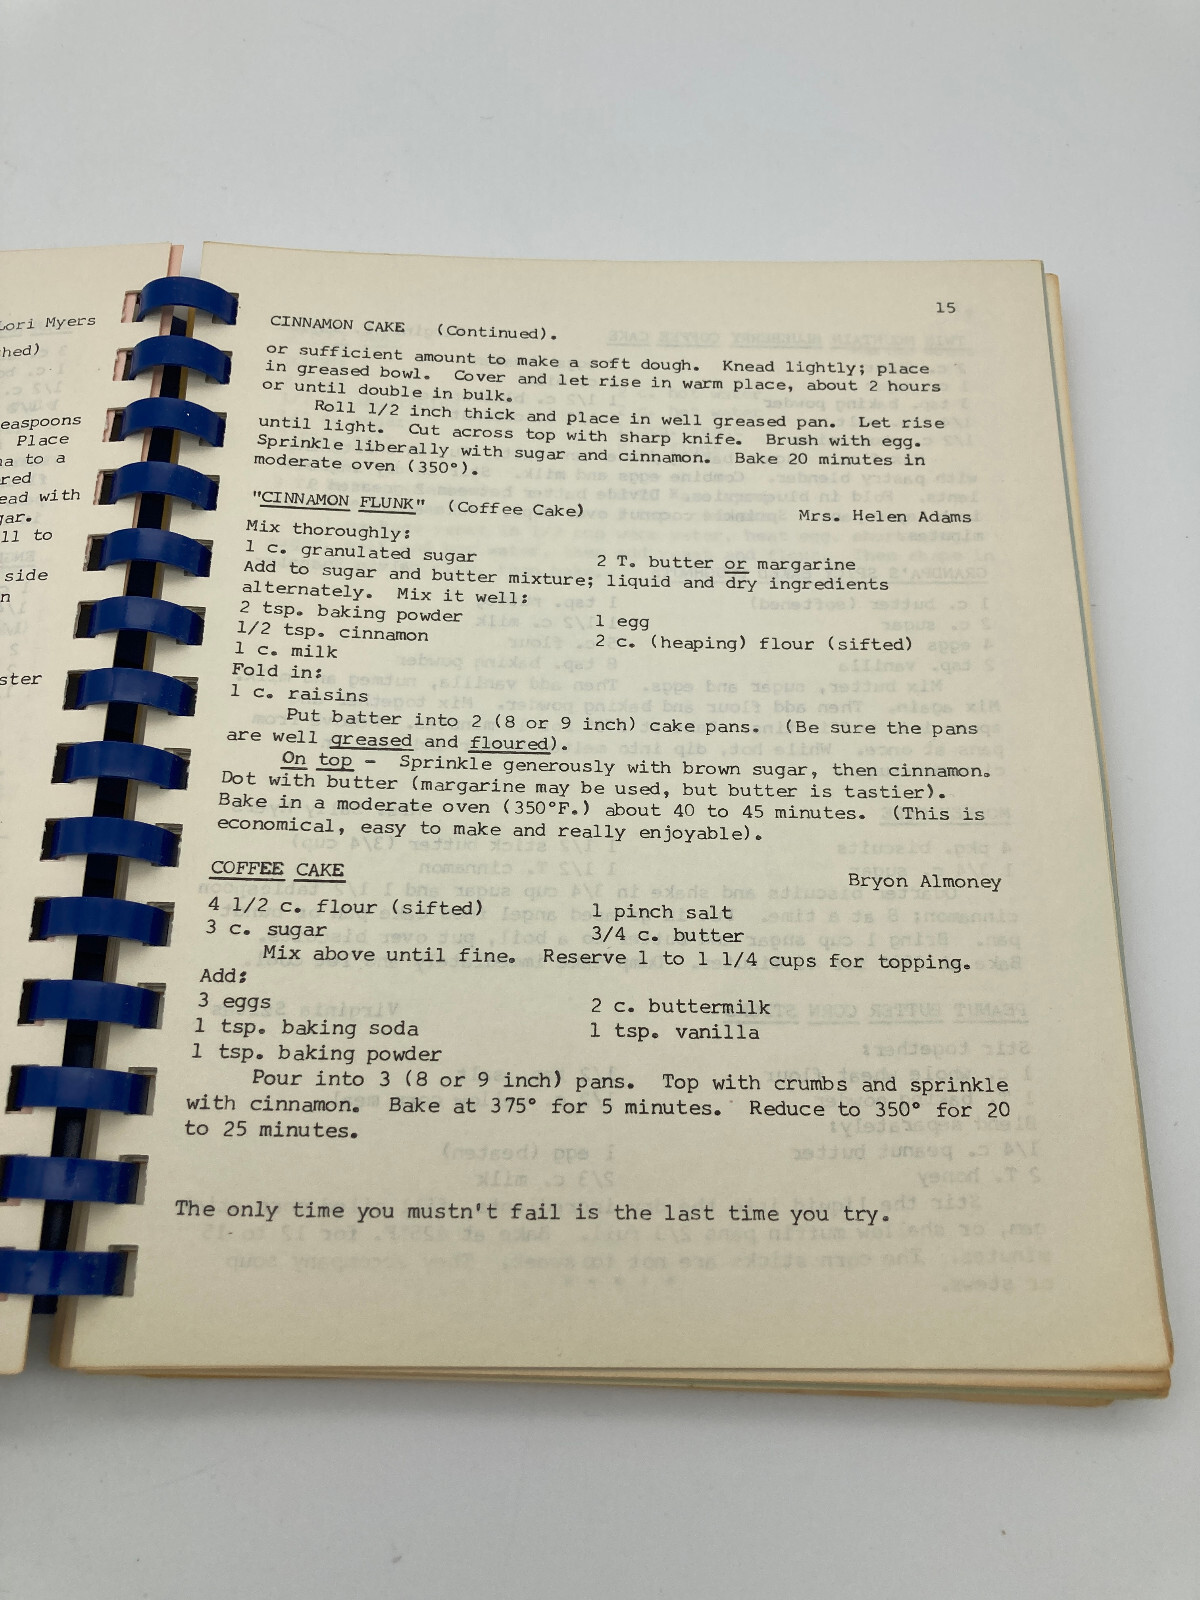 Lori Myers
hed)
easpoons
Place
a to a
red
ead with
gar.
ll to
side
n
ster
15
CINNAMON CAKE (Continued).
or sufficient amount to make a soft dough. Knead lightly; place
in greased bowl. Cover and let rise in warm place, about 2 hours
or until double in bulk.
Roll 1/2 inch thick and place in well greased pan. Let rise
until light. Cut across top with sharp knife. Brush with egg.
Sprinkle liberally with sugar and cinnamon. Bake 20 minutes in
moderate oven (350°).
"CINNAMON FLUNK" (Coffee Cake) Mrs. Helen Adams
Mix thoroughly:
1 c. granulated sugar 2 T. butter or margarine
Add to sugar and butter mixture; liquid and dry ingredients
alternately. Mix it well:
2 tsp. baking powder 1 egg
1/2 tsp. cinnamon 2 c. (heaping) flour (sifted)
1 c. milk
Fold in:
1 c. raisins
Put batter into 2 (8 or 9 inch) cake pans. (Be sure the pans
are well greased and floured).
On top - Sprinkle generously with brown sugar, then cinnamon.
Dot with butter (margarine may be used, but butter is tastier).
Bake in a moderate oven (350°F.) about 40 to 45 minutes. (This is
economical, easy to make and really enjoyable).
COFFEE CAKE Bryon Almoney
4 1/2 c. flour (sifted) 1 pinch salt
3 c. sugar 3/4 c. butter
Mix above until fine. Reserve 1 to 1 1/4 cups for topping.
Add:
3 eggs 2 c. buttermilk
1 tsp. baking soda 1 tsp. vanilla
1 tsp. baking powder
Pour into 3 (8 or 9 inch) pans. Top with crumbs and sprinkle
with cinnamon. Bake at 375° for 5 minutes. Reduce to 350° for 20
to 25 minutes.
The only time you mustn't fail is the last time you try.